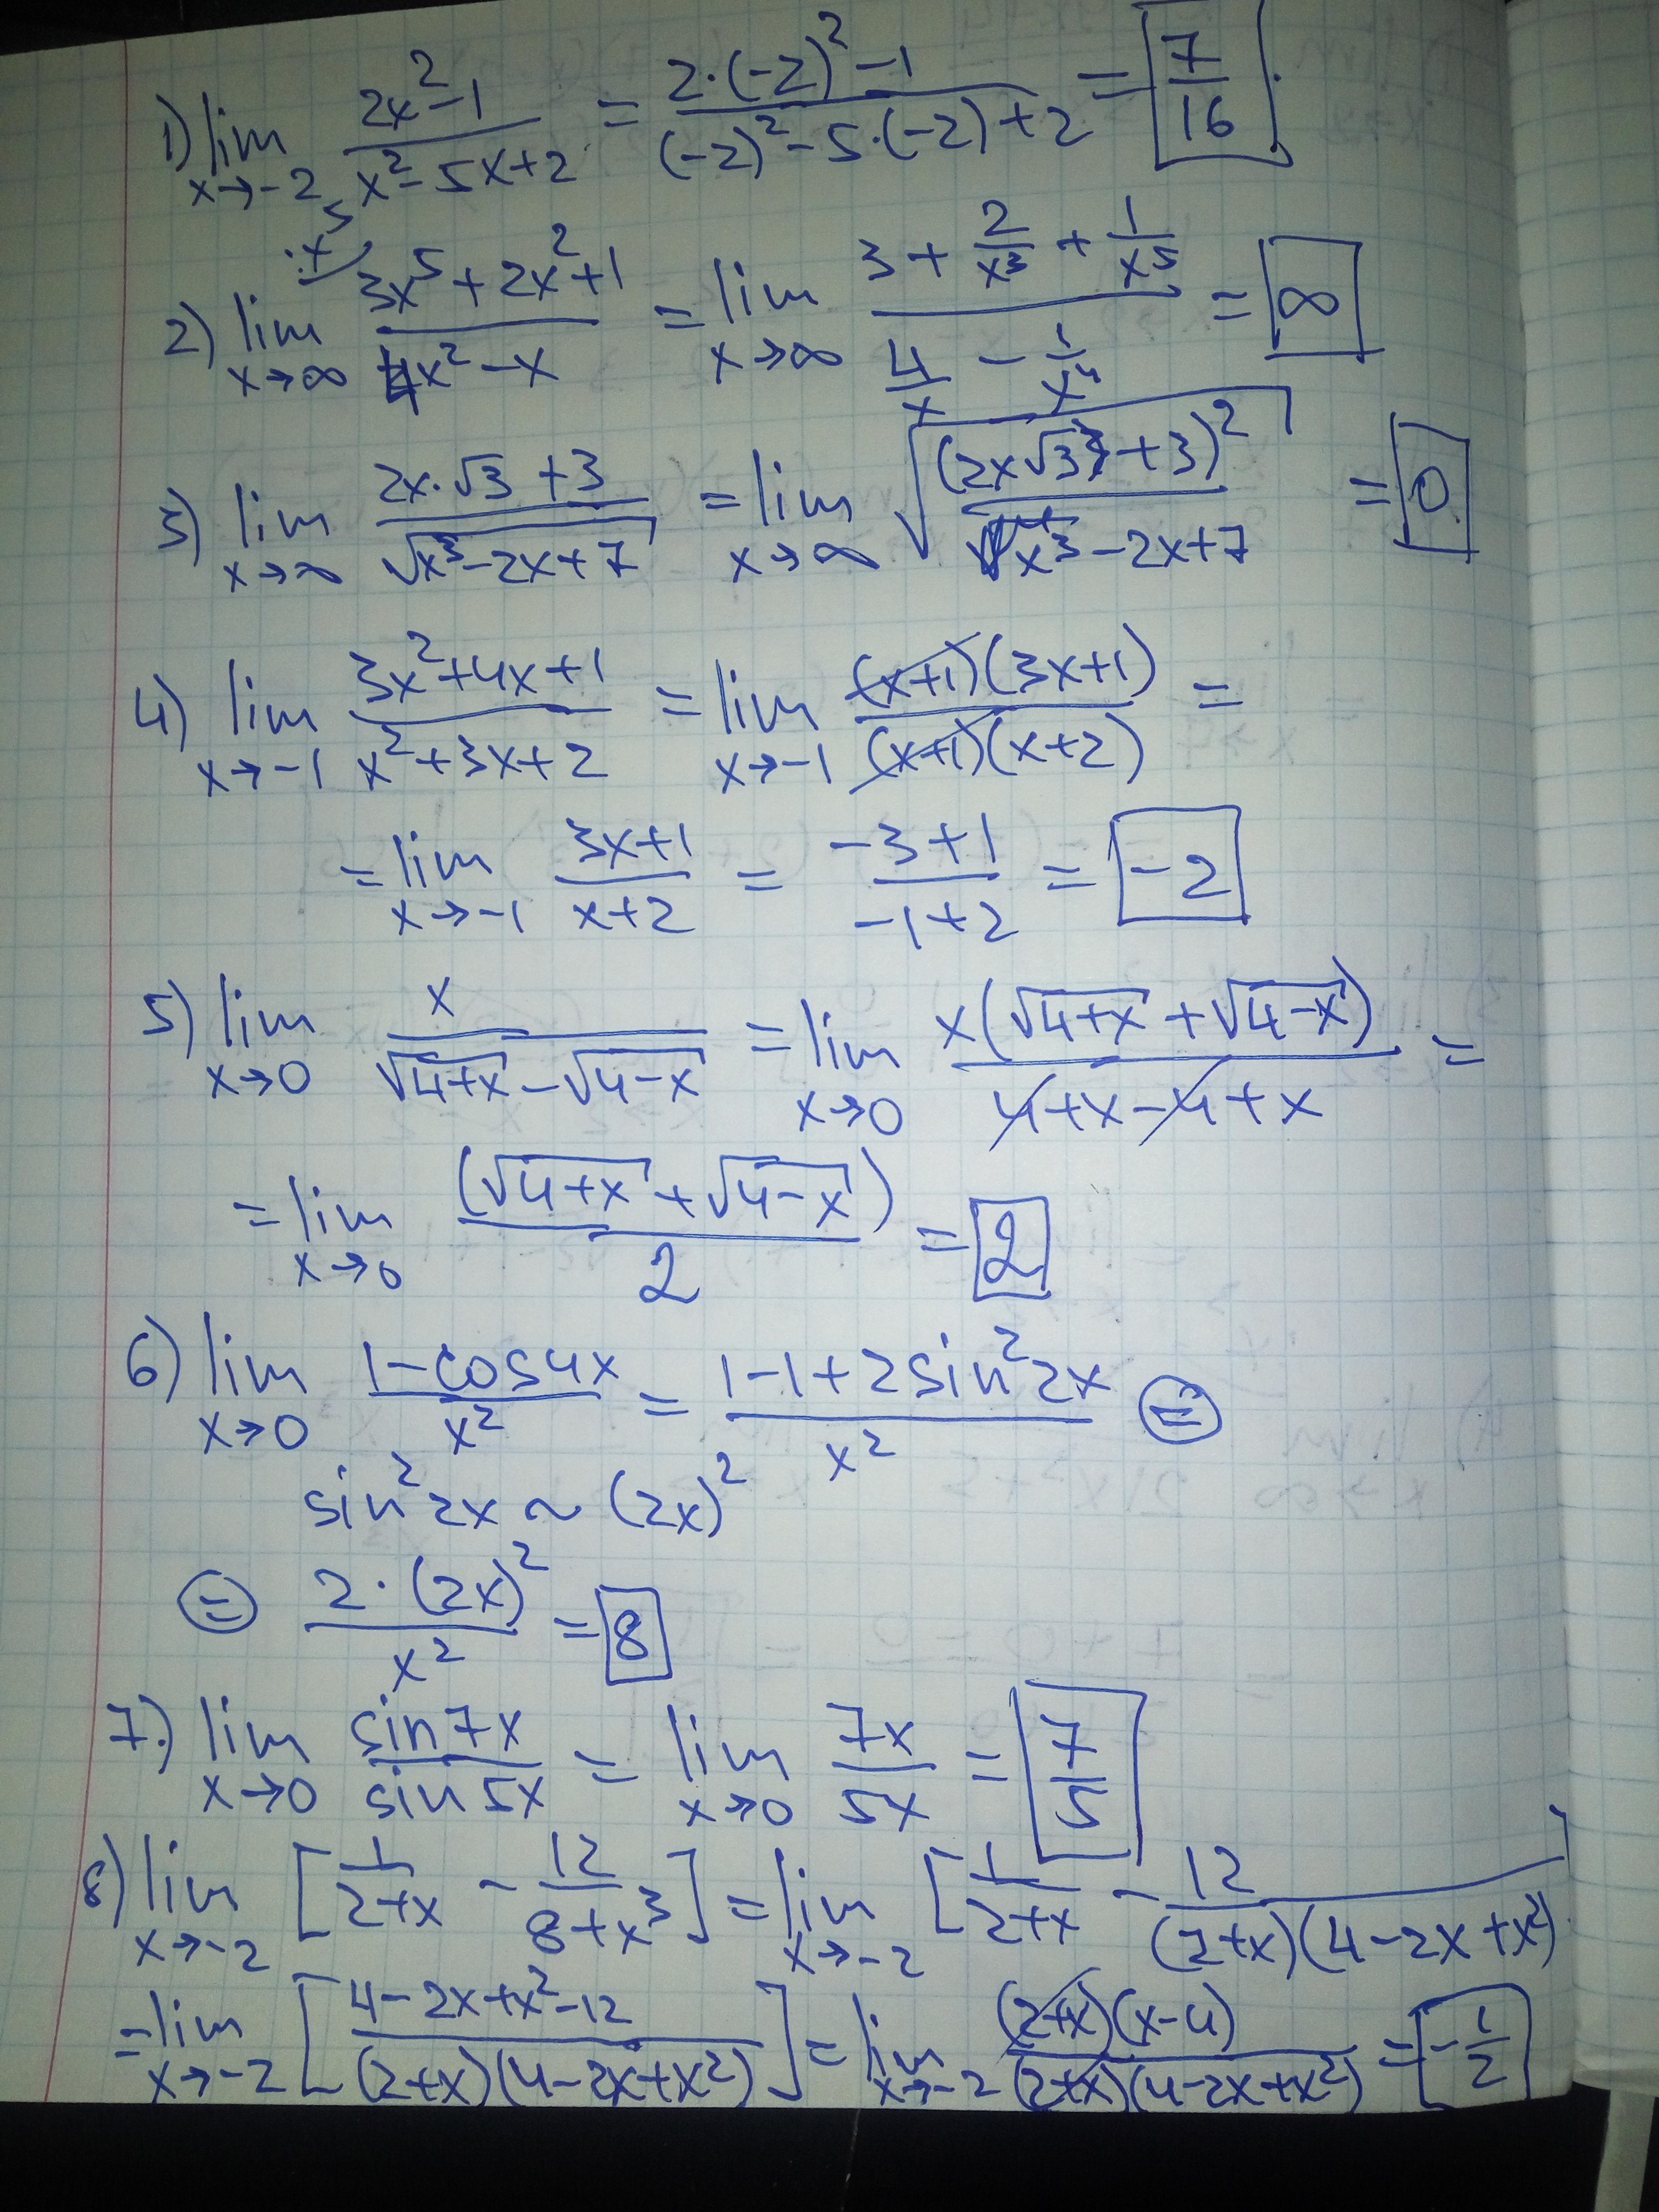 1) lim x→-2 (2x²-1)/(x²-5x+2) = (2·(-2)²-1)/((-2)²-5·(-2)+2) = 7/16.
:x⁵)
2) lim x→∞ (3x⁵+2x²+1)/(4x²-x) = lim x→∞ (3+2/x³+1/x⁵)/(4/x-1/x⁴) = ∞
3) lim x→∞ (2x·√3+3)/√(x³-2x+7) = lim x→∞ √((2x√3+3)²/(x³-2x+7)) = 0
4) lim x→-1 (3x²+4x+1)/(x²+3x+2) = lim x→-1 ((x+1)(3x+1))/((x+1)(x+2)) =
= lim x→-1 (3x+1)/(x+2) = (-3+1)/(-1+2) = -2
5) lim x→0 x/(√(4+x)-√(4-x)) = lim x→0 x(√(4+x)+√(4-x))/(4+x-4+x) =
= lim x→0 (√(4+x)+√(4-x))/2 = 2
6) lim x→0 (1-cos4x)/x² = (1-1+2sin²2x)/x² =
sin²2x ~ (2x)²
= 2·(2x)²/x² = 8
7.) lim x→0 sin7x/sin5x = lim x→0 7x/5x = 7/5
8) lim x→-2 [1/(2+x) - 12/(8+x³)] = lim x→-2 [1/(2+x) - 12/((2+x)(4-2x+x²))]
= lim x→-2 [(4-2x+x²-12)/((2+x)(4-2x+x²))] = lim x→-2 ((2+x)(x-4))/((2+x)(4-2x+x²)) = -1/2